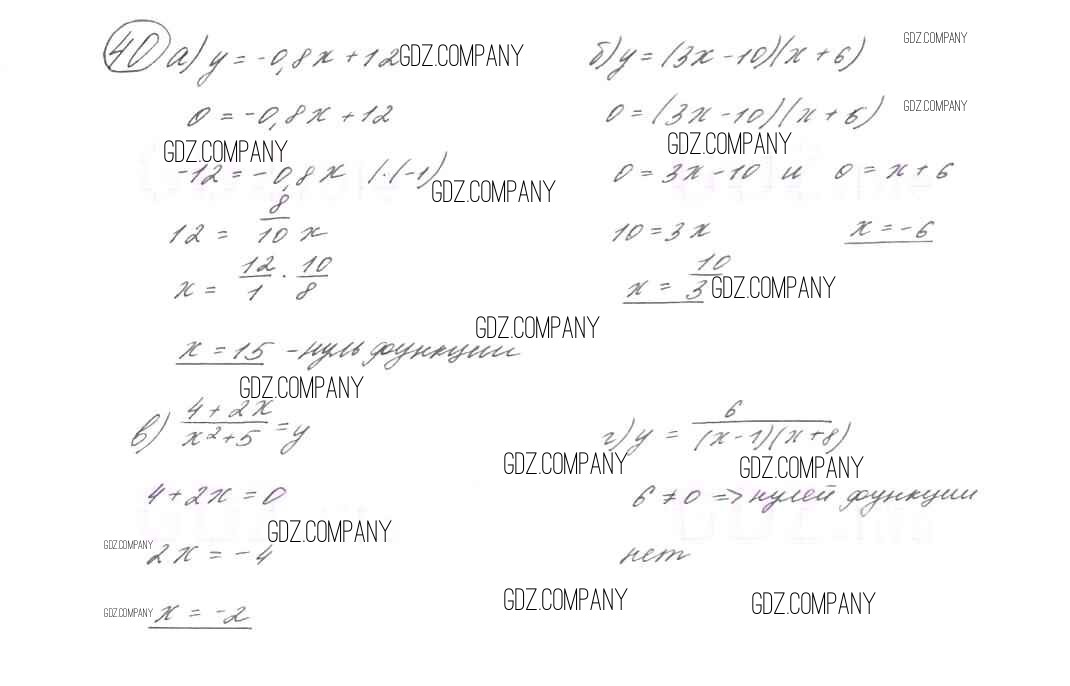 40 а) y = -0,8x + 12 GDZ.COMPANY
0 = -0,8x + 12
GDZ.COMPANY
-12 = -0,8x |·(-1)
GDZ.COMPANY
12 = 8/10 x
x = 12/1 · 10/8
GDZ.COMPANY
x = 15 - нуль функции
GDZ.COMPANY
б) y = (3x - 10)(x + 6) GDZ.COMPANY
0 = (3x - 10)(x + 6) GDZ.COMPANY
GDZ.COMPANY
0 = 3x - 10 и 0 = x + 6
10 = 3x x = -6
x = 10/3 GDZ.COMPANY
в) (4 + 2x)/(x² + 5) = y
4 + 2x = 0
GDZ.COMPANY
GDZ.COMPANY 2x = -4
GDZ.COMPANY x = -2
г) y = 6/((x - 1)(x + 8))
GDZ.COMPANY GDZ.COMPANY
6 ≠ 0 => нулей функции
нет
GDZ.COMPANY GDZ.COMPANY